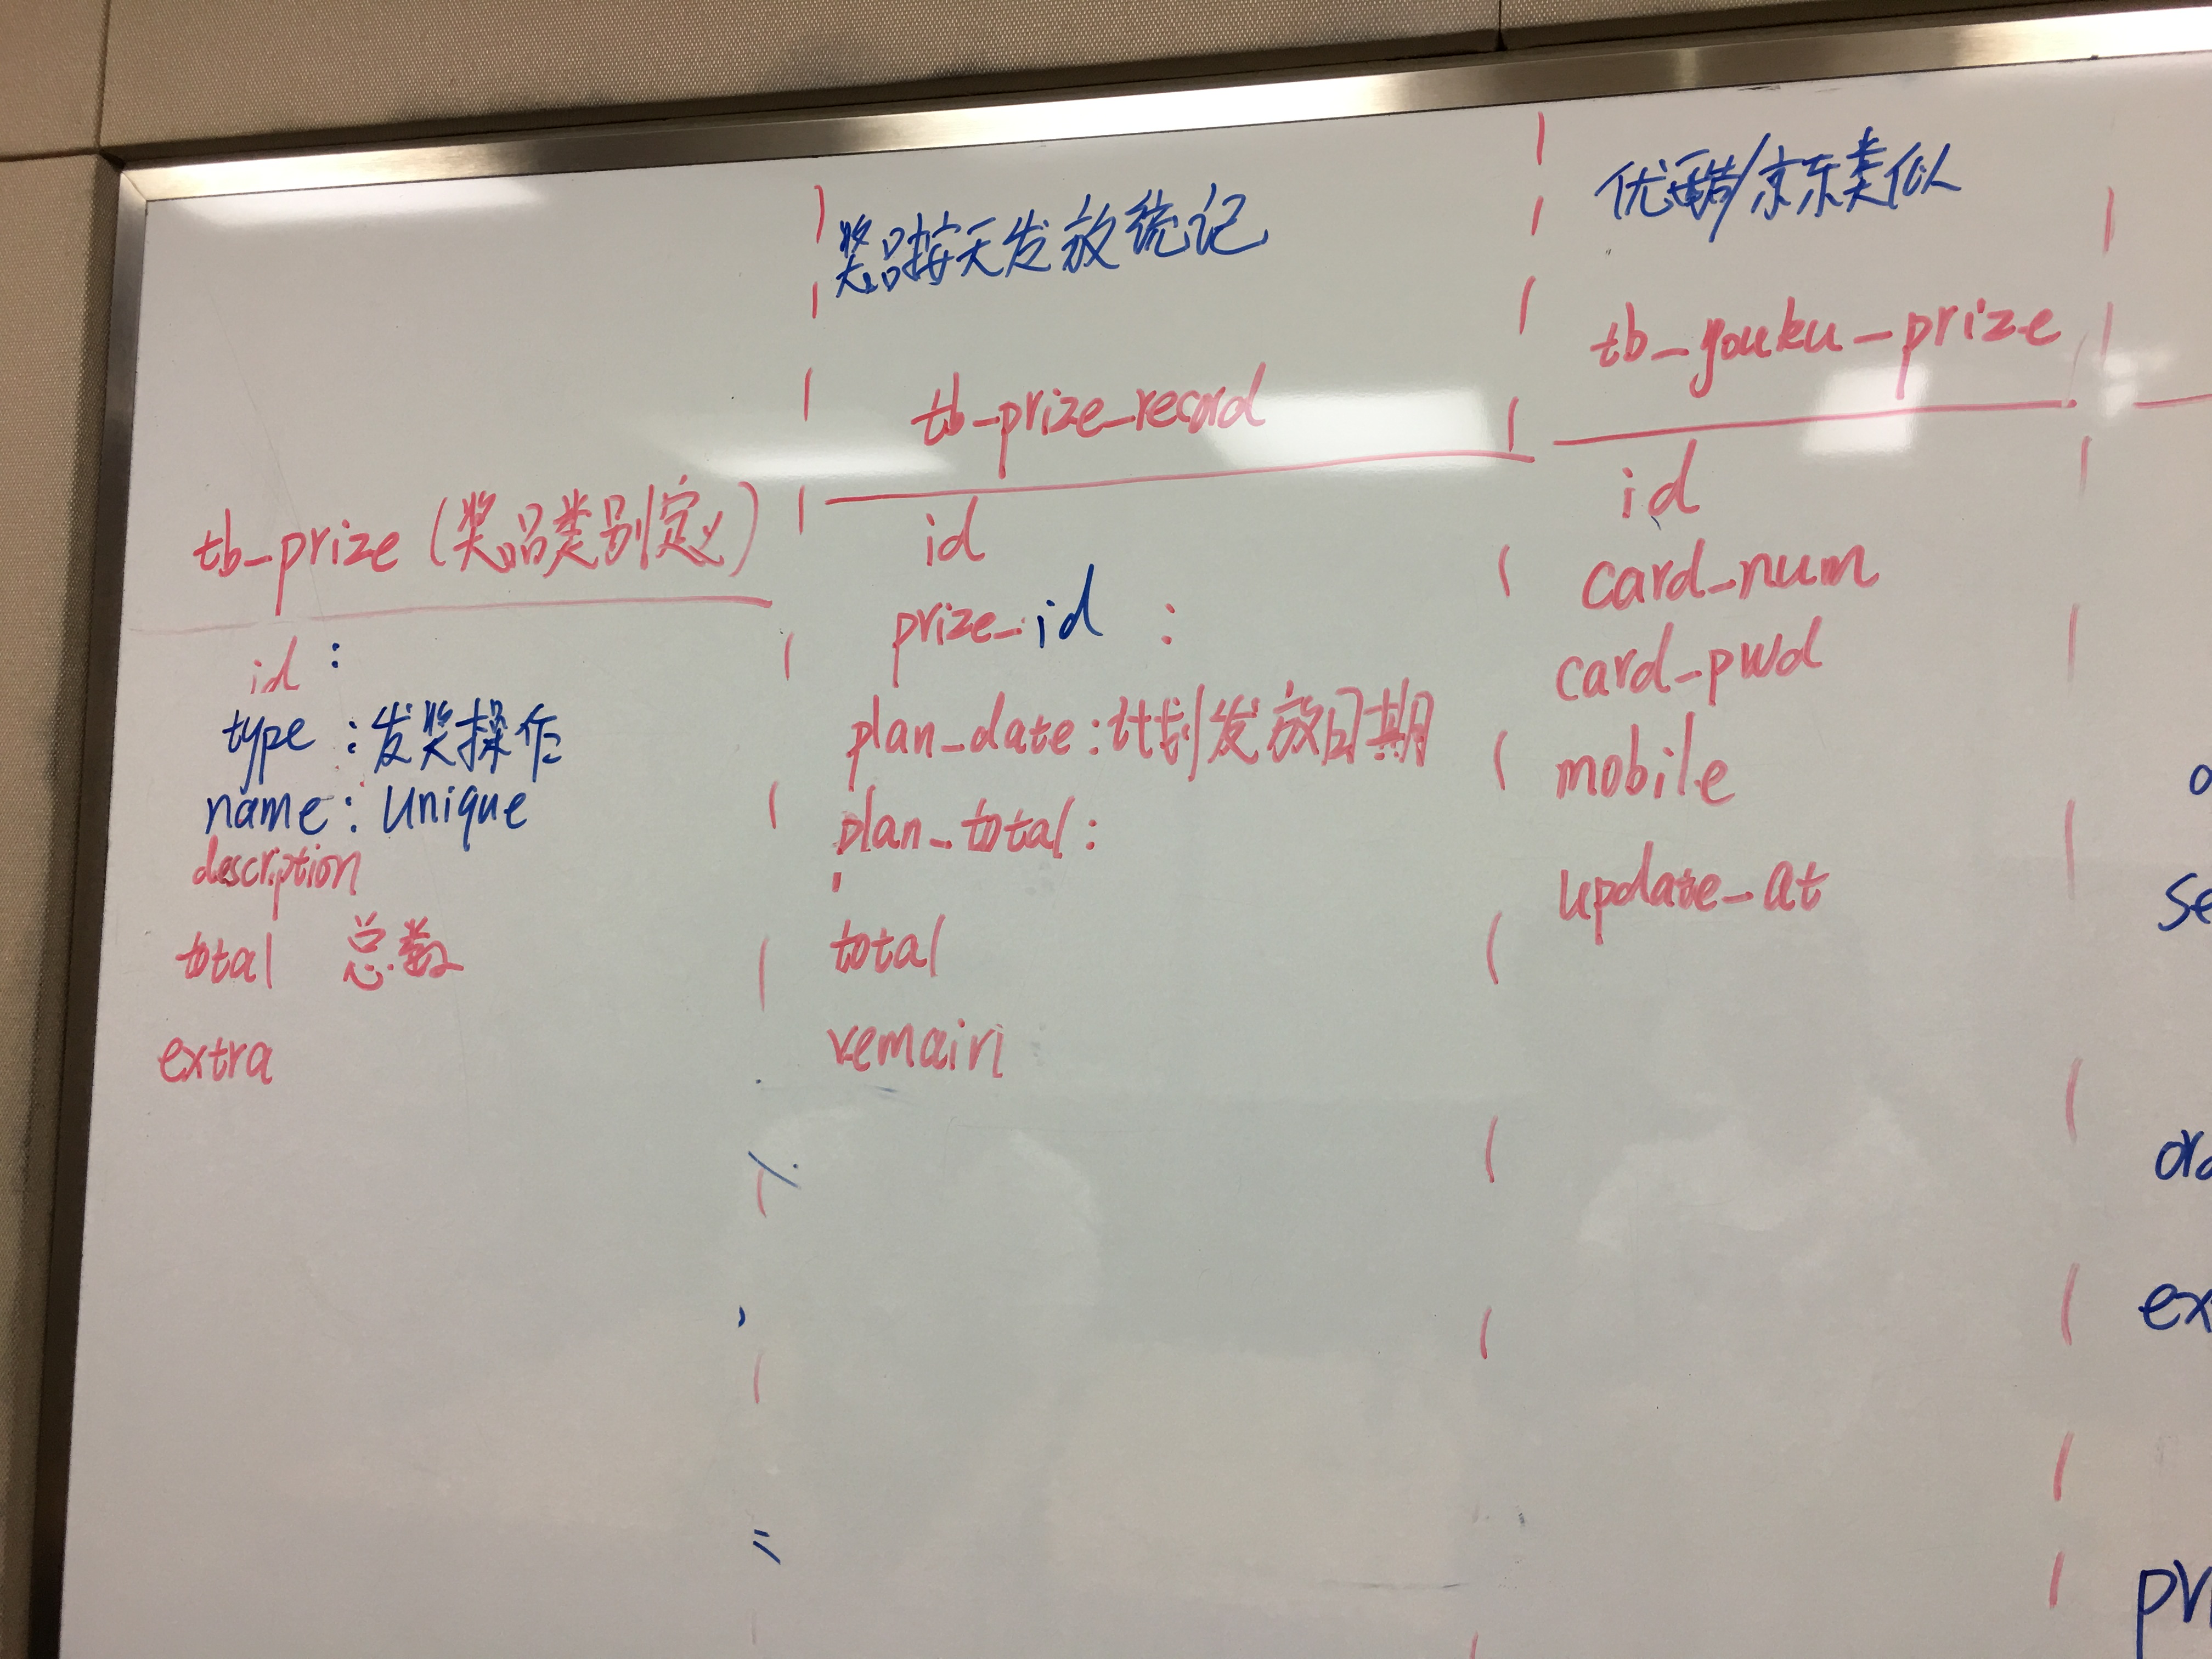 tb_prize (奖品类别定义)
id :
type : 发奖操作
name : unique
description
total 总数
extra
奖品按天发放统记
tb_prize_record
id
prize_id :
plan_date : 计划发放日期
plan_total :
total
remain
优酷/京东类似
tb_youku_prize
id
card_num
card_pwd
mobile
update_at